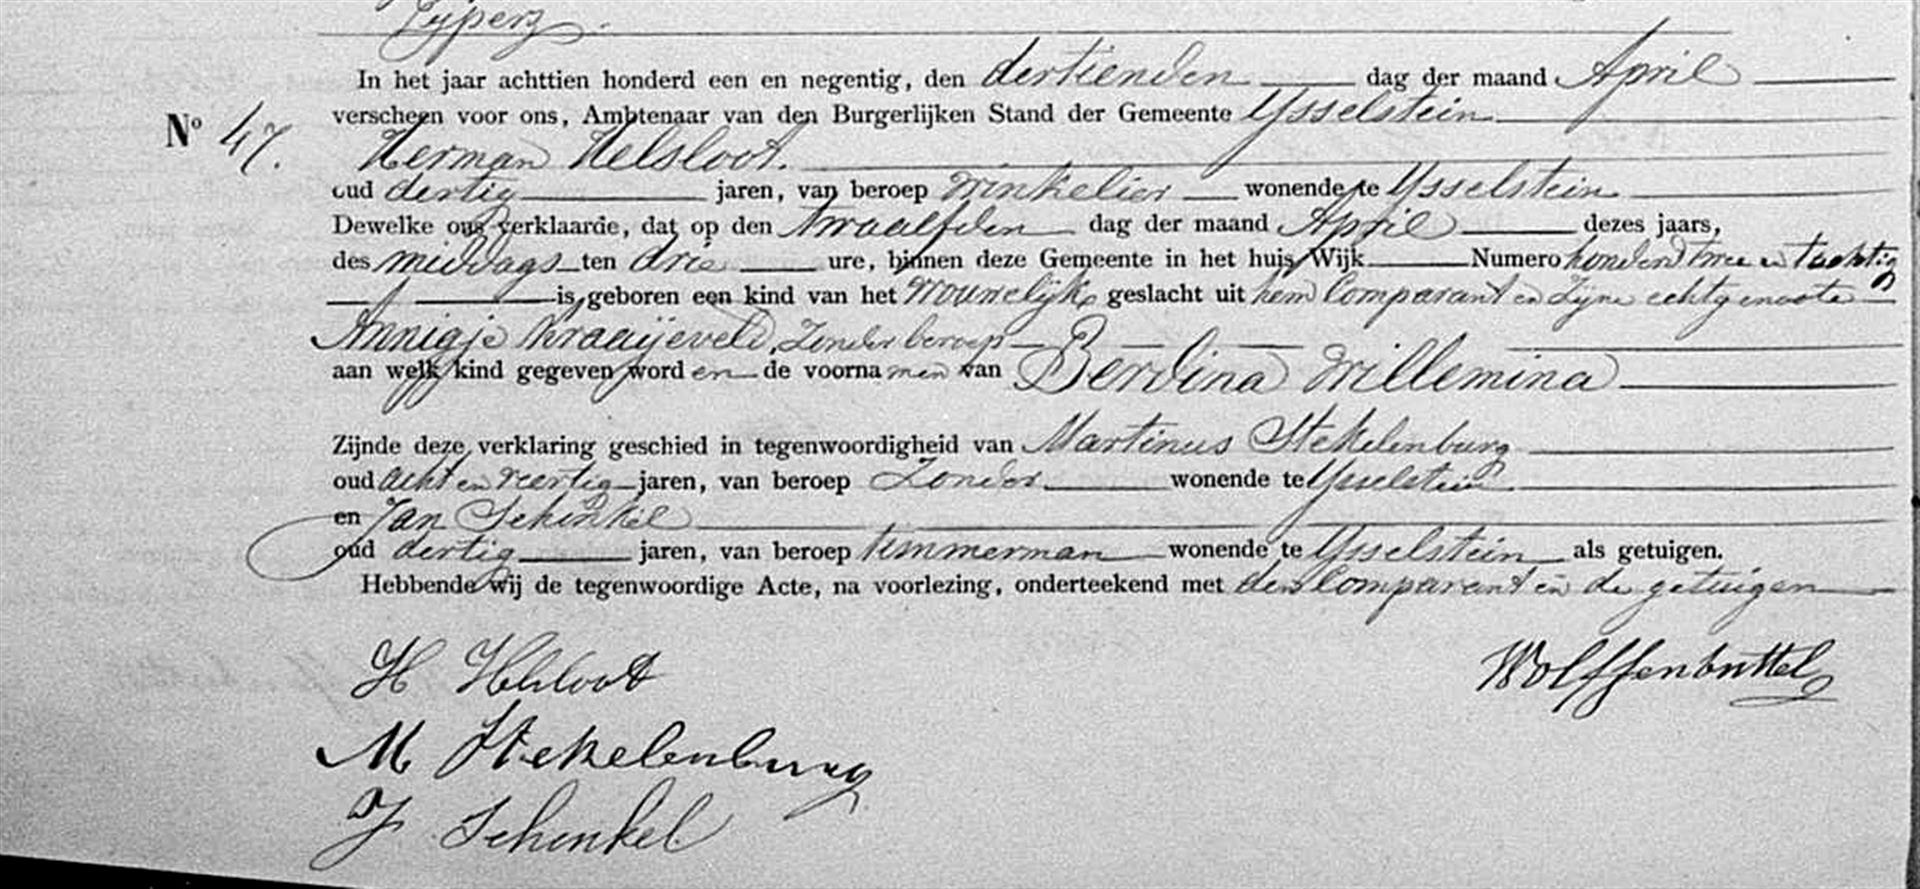 Zijperz.
In het jaar achttien honderd een en negentig, den dertienden dag der maand April
verscheen voor ons, Ambtenaar van den Burgerlijken Stand der Gemeente IJsselstein
No 47.
Herman Helsloot.
oud dertig jaren, van beroep winkelier wonende te IJsselstein
Dewelke ons verklaarde, dat op den twaalfden dag der maand April dezes jaars,
des middags ten drie ure, binnen deze Gemeente in het huis Wijk Numero honderd twee en tachtig
is geboren een kind van het vrouwelijk geslacht uit hem Comparant en zijne echtgenoote
Annigje Kraaijeveld, zonder beroep
aan welk kind gegeven worden de voornamen van Berdina Willemina
Zijnde deze verklaring geschied in tegenwoordigheid van Martinus Stekelenburg
oud acht en veertig jaren, van beroep zonder wonende te IJsselstein
en Jan Schinkel
oud dertig jaren, van beroep timmerman wonende te IJsselstein als getuigen.
Hebbende wij de tegenwoordige Acte, na voorlezing, onderteekend met den Comparant en de getuigen
H Helsloot
Wolffenbuttel
M Stekelenburg
J Schinkel